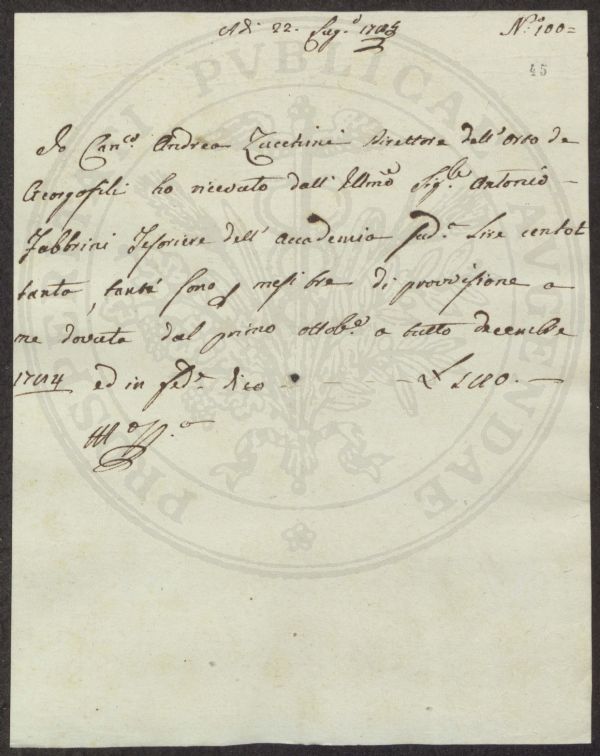 Adi 22. Lug.o 1785
N.o 100=
45
Io Can.co Andrea Zucchini Direttore dell'Orto de
Georgofili ho ricevuto dall'Illmo Sig.re Antonio
Fabbrini Tesoriere dell'Accademia sud.a Lire centot
tanta, tante sono p mesi tre di provvisione a
me dovuta dal primo ottob.e a tutto decembre
1784 ed in fed.e dico - - - - £ 180. -
M.o P.o
PROSPERITATI PVBLICAE AVGENDAE